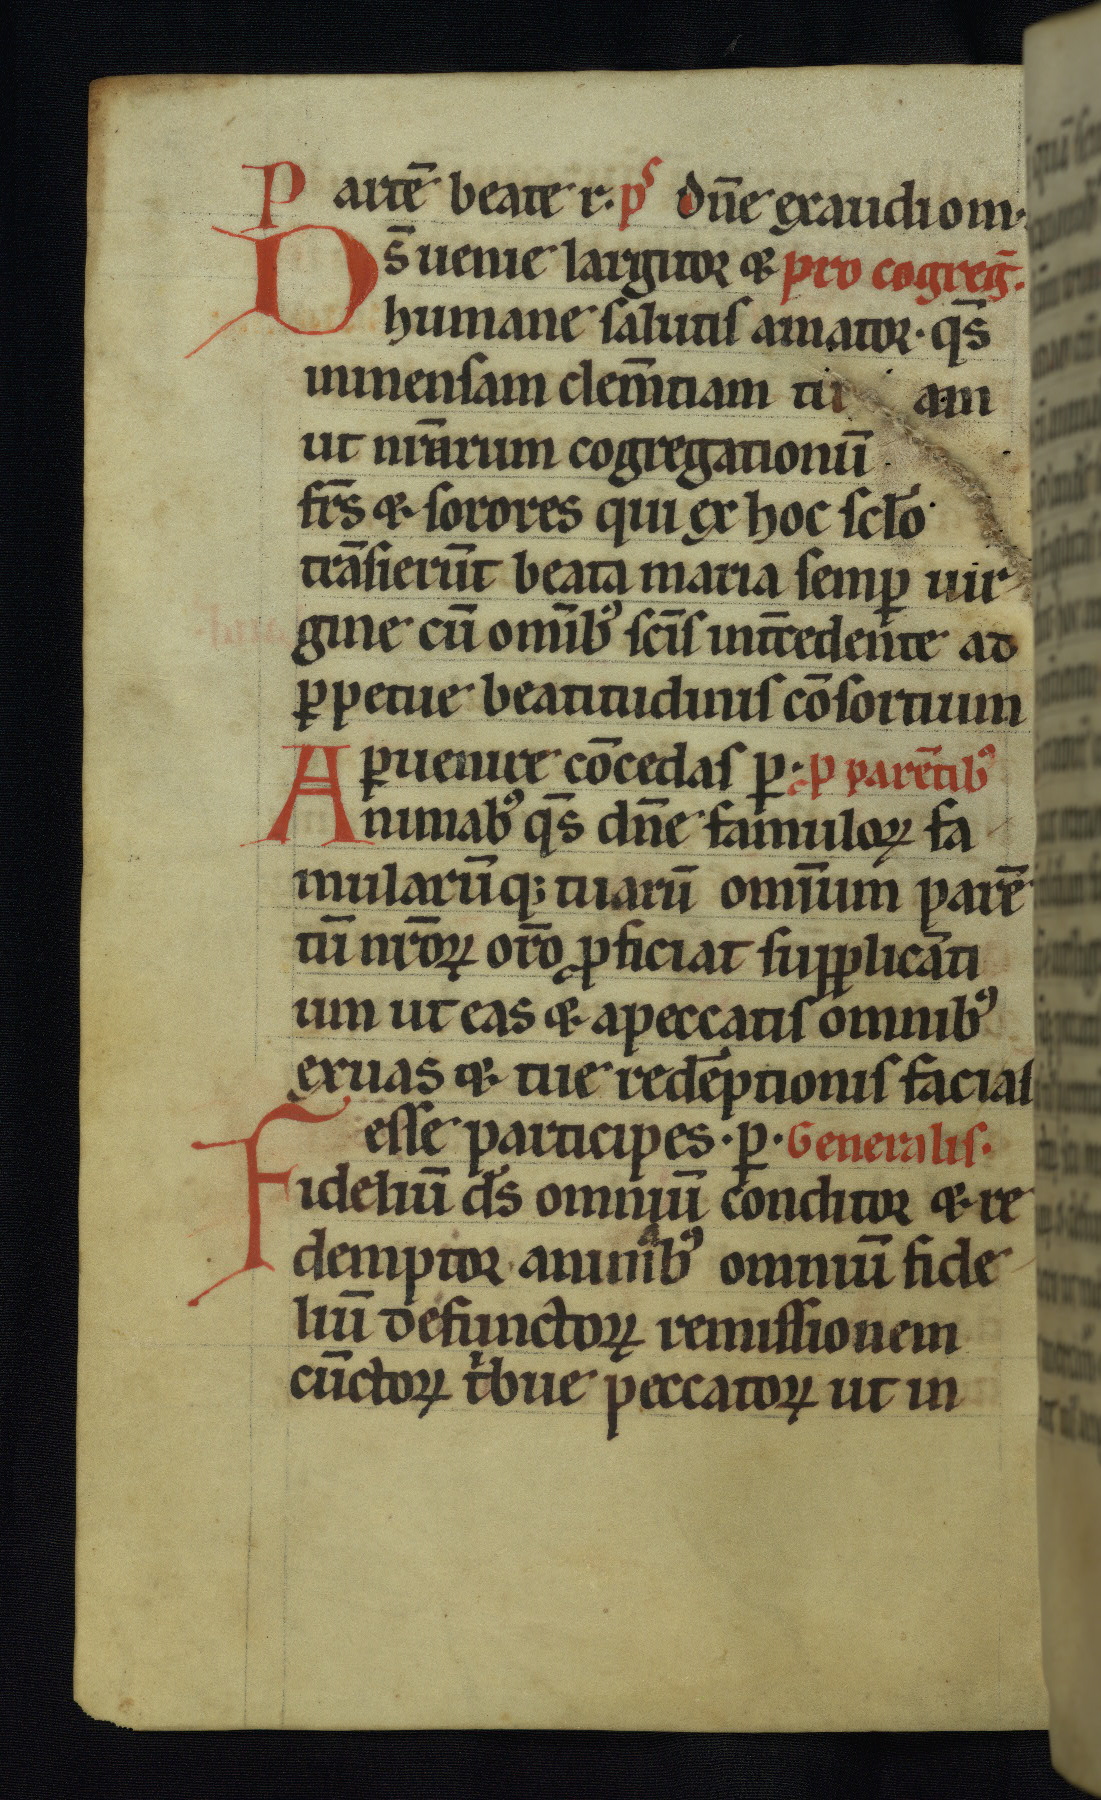 Partē beate r. ps dn̄e exaudi om.
Ds̄ uenie largitor & pro cogreḡ.
humane salutis amator· qs̄
inmensam clem̄tiam tu am
ut nr̄arum cogregationū
frs̄ & sorores qui ex hoc scl̄o
trāsierūt beata maria semꝑ uir
gine cū omīb⁹ scīs int̄cedente ad
ꝑpetue beatitudinis cōsortium
ꝑuenire cōcedas ꝑ· p parētib⁹
Animab⁹ qs̄ dn̄e famuloꝝ fa
mularūq; tuarū omīum parē
tū nr̄oꝝ or̄o ꝓficiat supplicāti
um ut eas & apeccatis omnib⁹
exuas & tue redēptionis facias
esse participes· ꝑ· Generalis·
Fideliū ds̄ omniū conditor & re
demptor animab⁹ omniū fide
liū defunctoꝝ remissionem
cūctoꝝ tⁱbue peccatoꝝ ut in